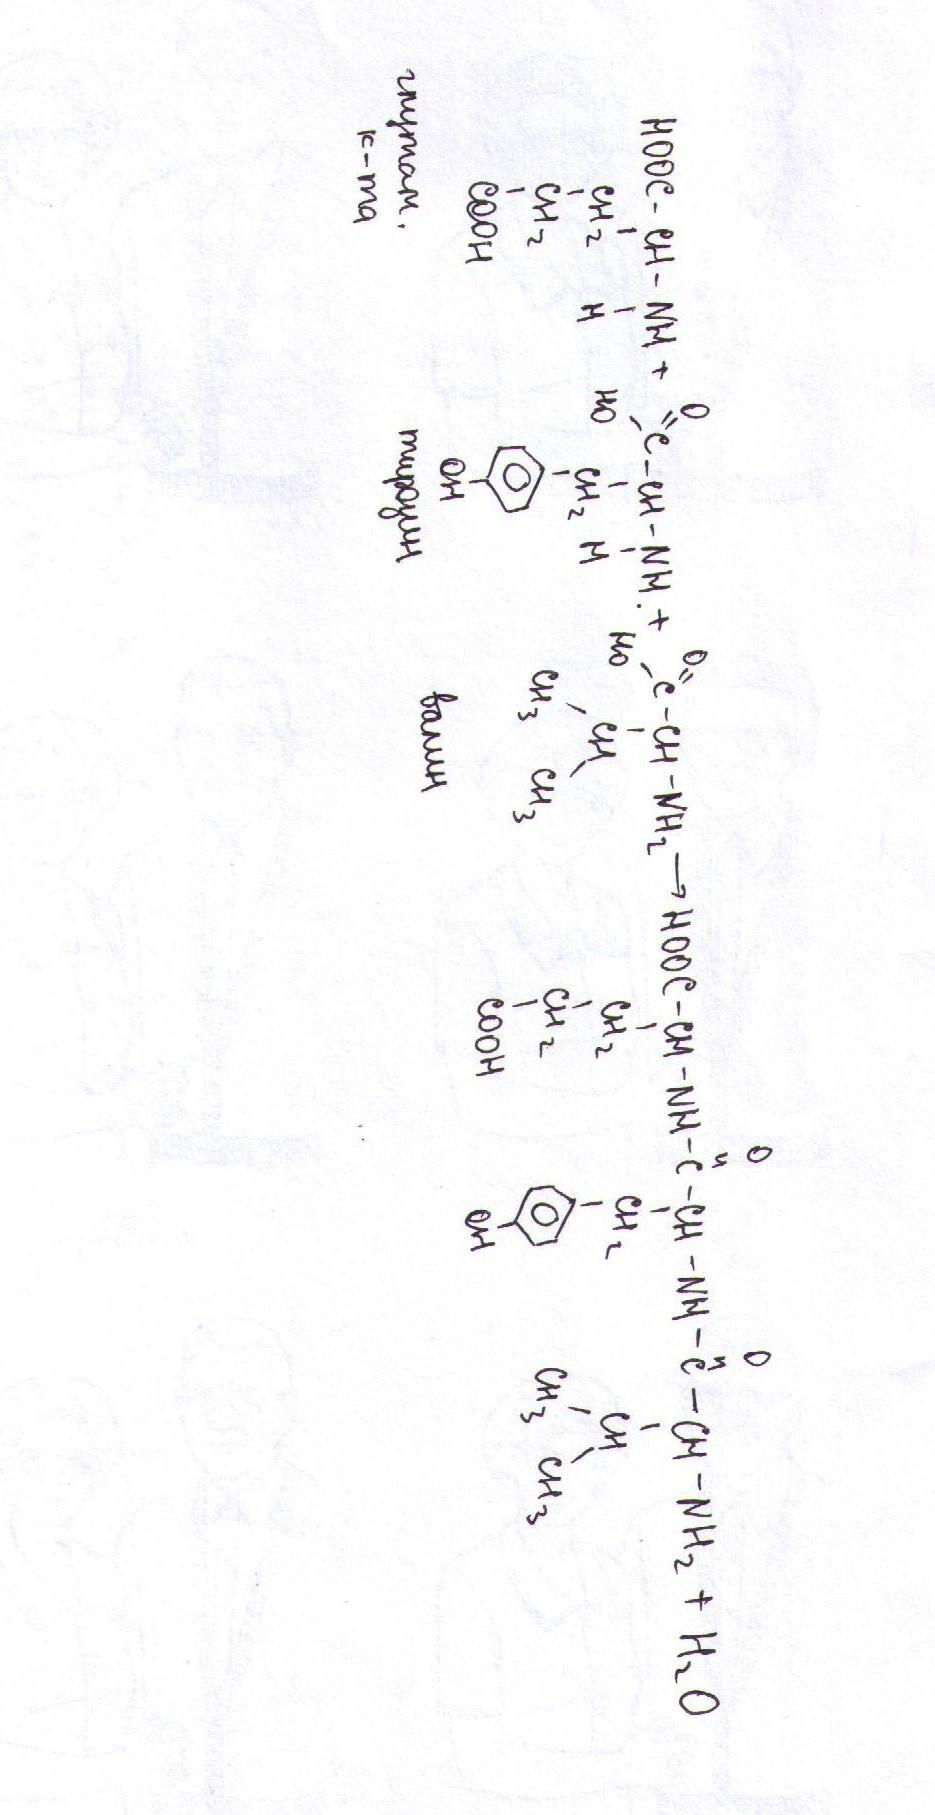 O O O O
HOOC - CH - NH + C - CH - NH + C - CH - NH2 → HOOC - CH - NH - C - CH - NH - C - CH - NH2 + H2O
CH2 H HO CH2 H HO CH CH2 CH2 CH
CH2 CH3 CH3 CH2 CH3 CH3
COOH OH COOH OH
глутам. тирозин валин
к-та